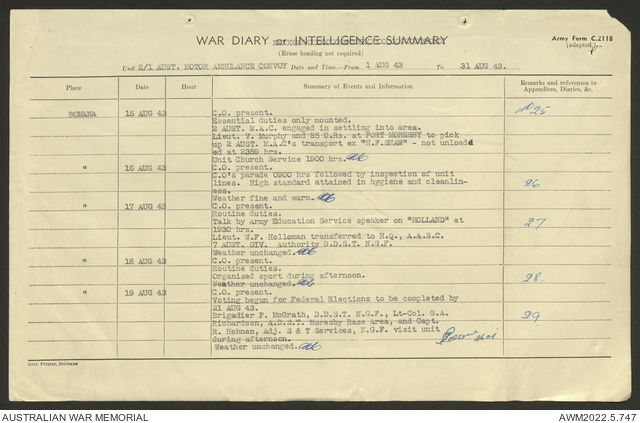 WAR DIARY or INTELLIGENCE SUMMARY
Army Form C.2118
(adapted.)
(Erase heading not required)
Unit 2/1 AUST. MOTOR AMBULANCE CONVOY Date and Time—From 1 AUG 43 To 31 AUG 43.
Place Date Hour Summary of Events and Information Remarks and references to Appendices, Diaries, &c.
BOMANA 15 AUG 43 C.O. present. 25
Essential duties only mounted.
2 AUST. M.A.C. engaged in settling into area.
Lieut. V. Murphy and 25 O.Rs. at PORT MORESBY to pick
up 2 AUST. M.A.C's transport ex "H.F.SHAW" - not unload
ed at 2359 hrs.
Unit Church Service 1900 hrs.
" 16 AUG 43 C.O. present.
C.O's parade 0900 hrs followed by inspection of unit
lines. High standard attained in hygiene and cleanlin- 26
ess.
Weather fine and warm.
" 17 AUG 43 C.O. present.
Routine duties.
Talk by Army Education Service speaker on "HOLLAND" at 27
1930 hrs.
Lieut. W.F. Holloman transferred to H.Q., A.A.S.C.
7 AUST. DIV. Authority D.D.S.T. N.G.F.
Weather unchanged.
" 18 AUG 43 C.O. present.
Routine duties.
Organised sport during afternoon. 28.
Weather unchanged.
" 19 AUG 43 C.O. present.
Voting begun for Federal Elections to be completed by
21 AUG 43.
Brigadier F. McGrath, D.D.S.T. N.G.F., Lt-Col. G.A. 29
Richardson, A.D.S.T. Moresby Base Area, and Capt.
R. Hohnen, Adj. S & T Services, N.G.F. visit unit
during afternoon.
Weather unchanged.
Govt. Printer, Brisbane
AUSTRALIAN WAR MEMORIAL
AWM2022.5.747